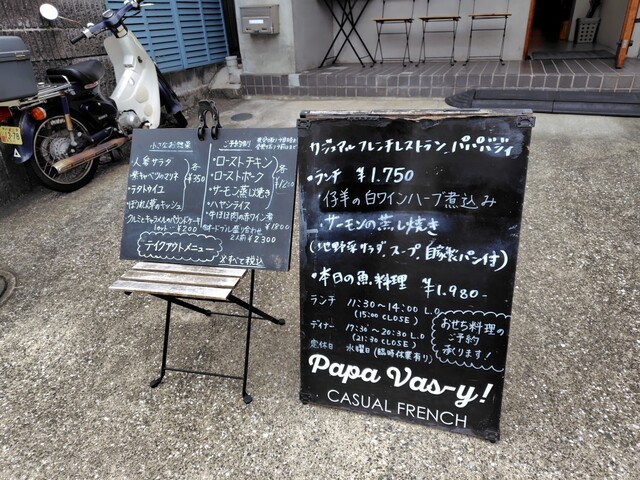 小さなお惣菜
・人参サラダ
・紫キャベツのマリネ
・ラタトゥイユ
・ほうれん草のキッシュ
各¥350
クルミとキャラメルのパウンドケーキ
1カット ¥200
テイクアウトメニュー
ご予約制
・ローストチキン
・ローストポーク
・サーモン蒸し焼き
各¥1200
・ハヤシライス
・牛ほほ肉の赤ワイン煮
¥1800
・オードブル盛り合わせ
2人前 ¥2300
※すべて税込
カジュアル フレンチレストラン パパバジィ
・ランチ ¥1.750
仔羊の白ワインハーブ煮込み
サーモンの蒸し焼き
(地野菜サラダ、スープ、自家製パン付)
・本日の魚料理 ¥1.980-
ランチ 11:30〜14:00 L.O
(15:00 CLOSE)
ディナー 17:30〜20:30 L.O
(21:30 CLOSE)
定休日 水曜日(臨時休業有り)
おせち料理の
ご予約
承ります!
Papa Vas-y!
CASUAL FRENCH